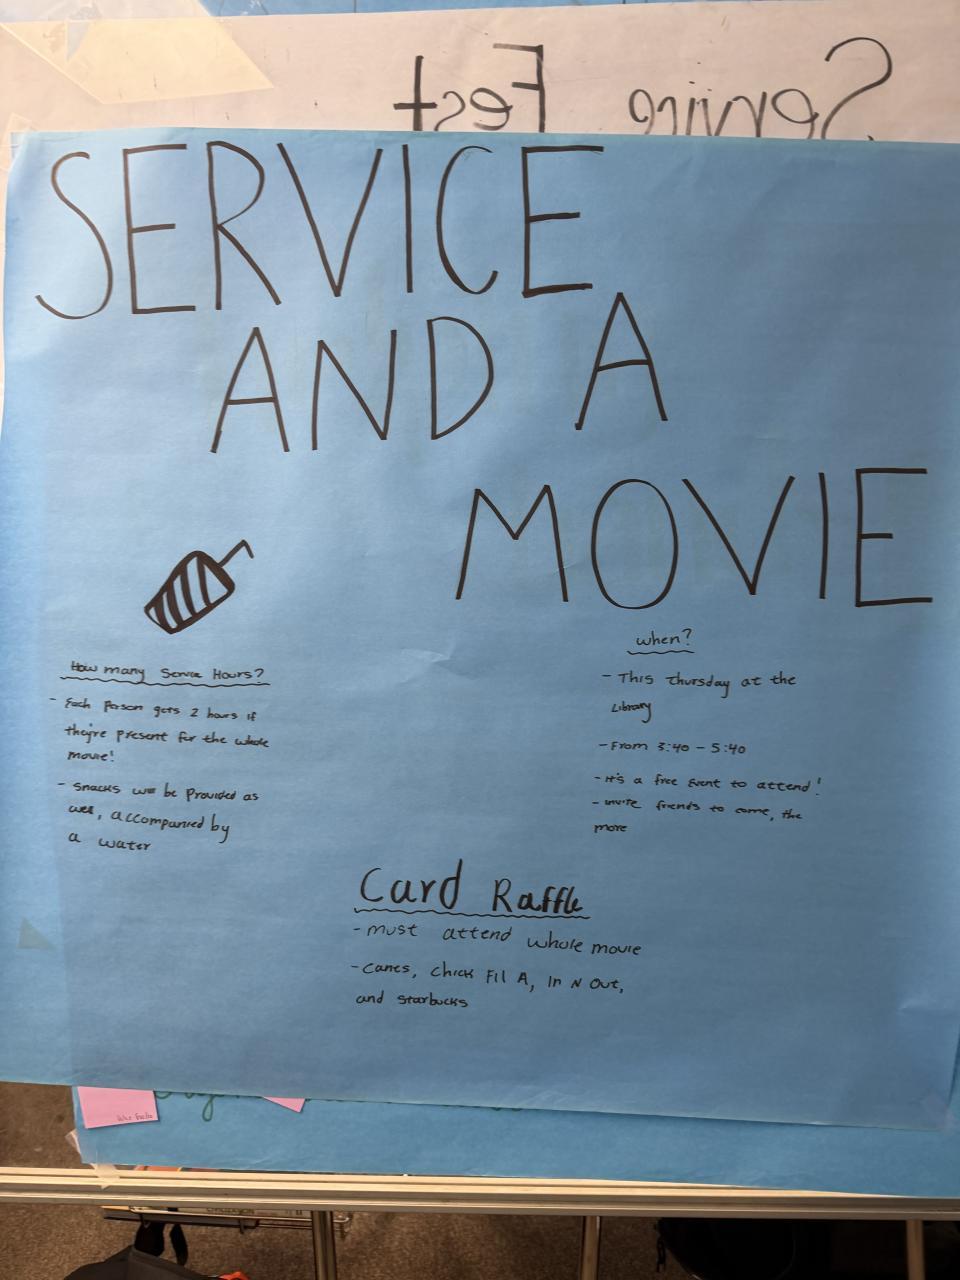 Service Fest
SERVICE
AND A
MOVIE
How many Service Hours?
- Each Person gets 2 hours if
they're present for the whole
movie!
- Snacks will be Provided as
well, accompanied by
a water
when?
- This Thursday at the
Library
- From 3:40 - 5:40
- It's a free event to attend!
- invite friends to come, the
more
Card Raffle
- must attend whole movie
- Canes, Chick Fil A, In N Out,
and Starbucks